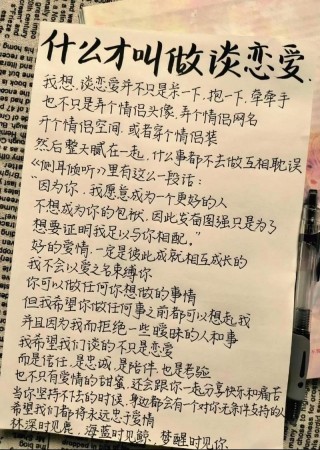 什么才叫做谈恋爱.
我想,谈恋爱并不只是亲一下,抱一下,牵牵手
也不只是弄个情侣头像,弄个情侣网名
开个情侣空间,或者穿个情侣装
然后整天腻在一起,什么事都不去做互相耽误
《侧耳倾听》里有这么一段话:
"因为你,我愿意成为一个更好的人
不想成为你的包袱,因此发奋图强只是为了
想要证明我足以与你相配。"
好的爱情,一定是彼此成就相互成长的
我不会以爱之名束缚你
你可以做任何你想做的事情
但我希望你做任何事之前都可以想起我
并且因为我而拒绝一些暧昧的人和事
我希望我们谈的不只是恋爱
而是信任,是忠诚,是陪伴,也是考验
也不只有爱情的甜蜜,还会跟你一起分享快乐和痛苦
当你坚持不下去的时候,身边都会有一个对你无条件支持的人
希望我们都将永远忠于爱情
林深时见鹿,海蓝时见鲸,梦醒时见你